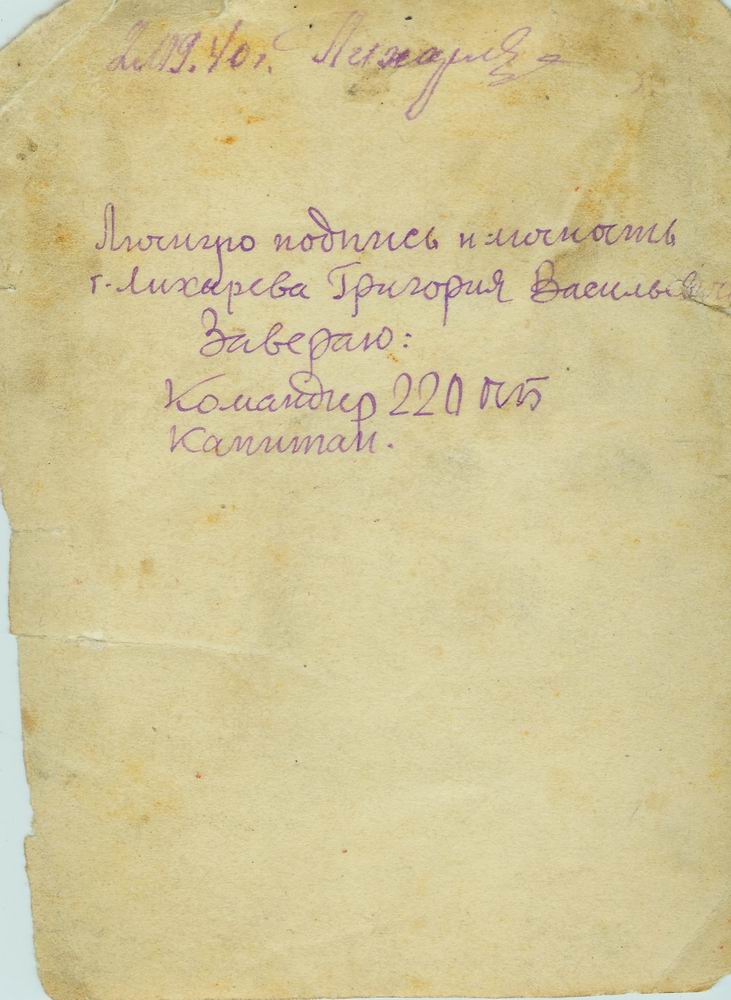 2.09.40 г. Лихарев
Личную подпись и личность
г. Лихарева Григория Васильевич
Завераю:
Командир 220
Капитан.